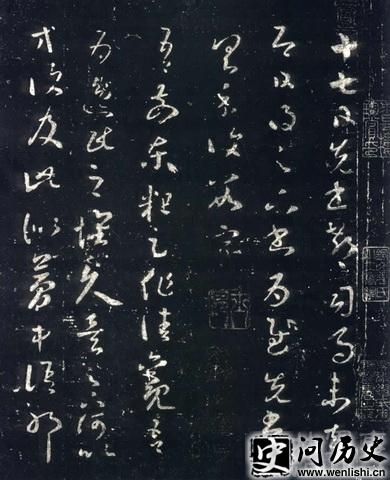 十七日先書郗司馬未去
即日得足下書為慰先書
具示復數字
吾前東粗足作佳觀吾
為逸民之懷久矣足下何以
方復及此似夢中語耶
史 问历史
www.wenlishi.cn